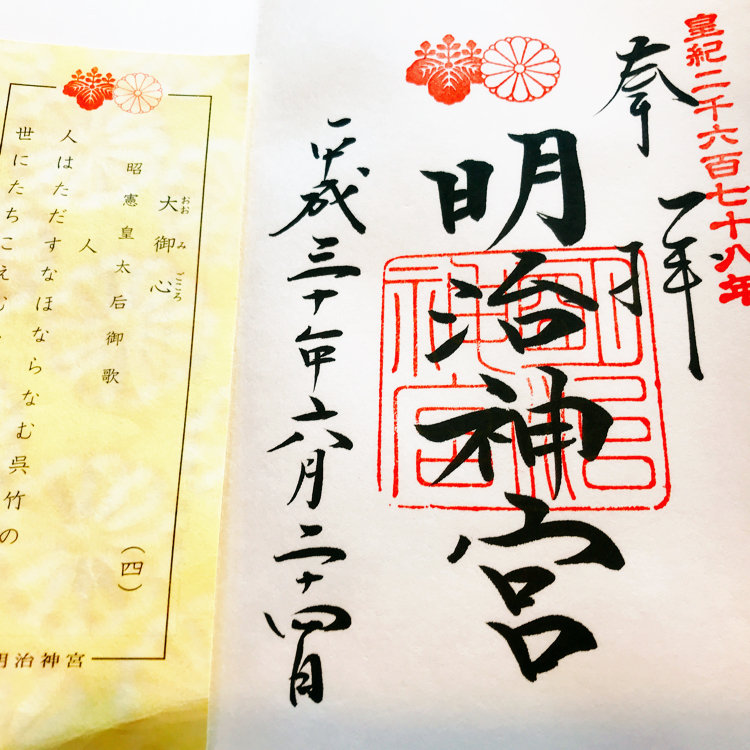 皇紀二千六百七十八年
奉拝
明治神宮
明治神宮
平成三十年六月二十四日
大御心
おおみごころ
昭憲皇太后御歌
人
人はただすなほならなむ呉竹の
世にたちこえむ
(四)
明治神宮